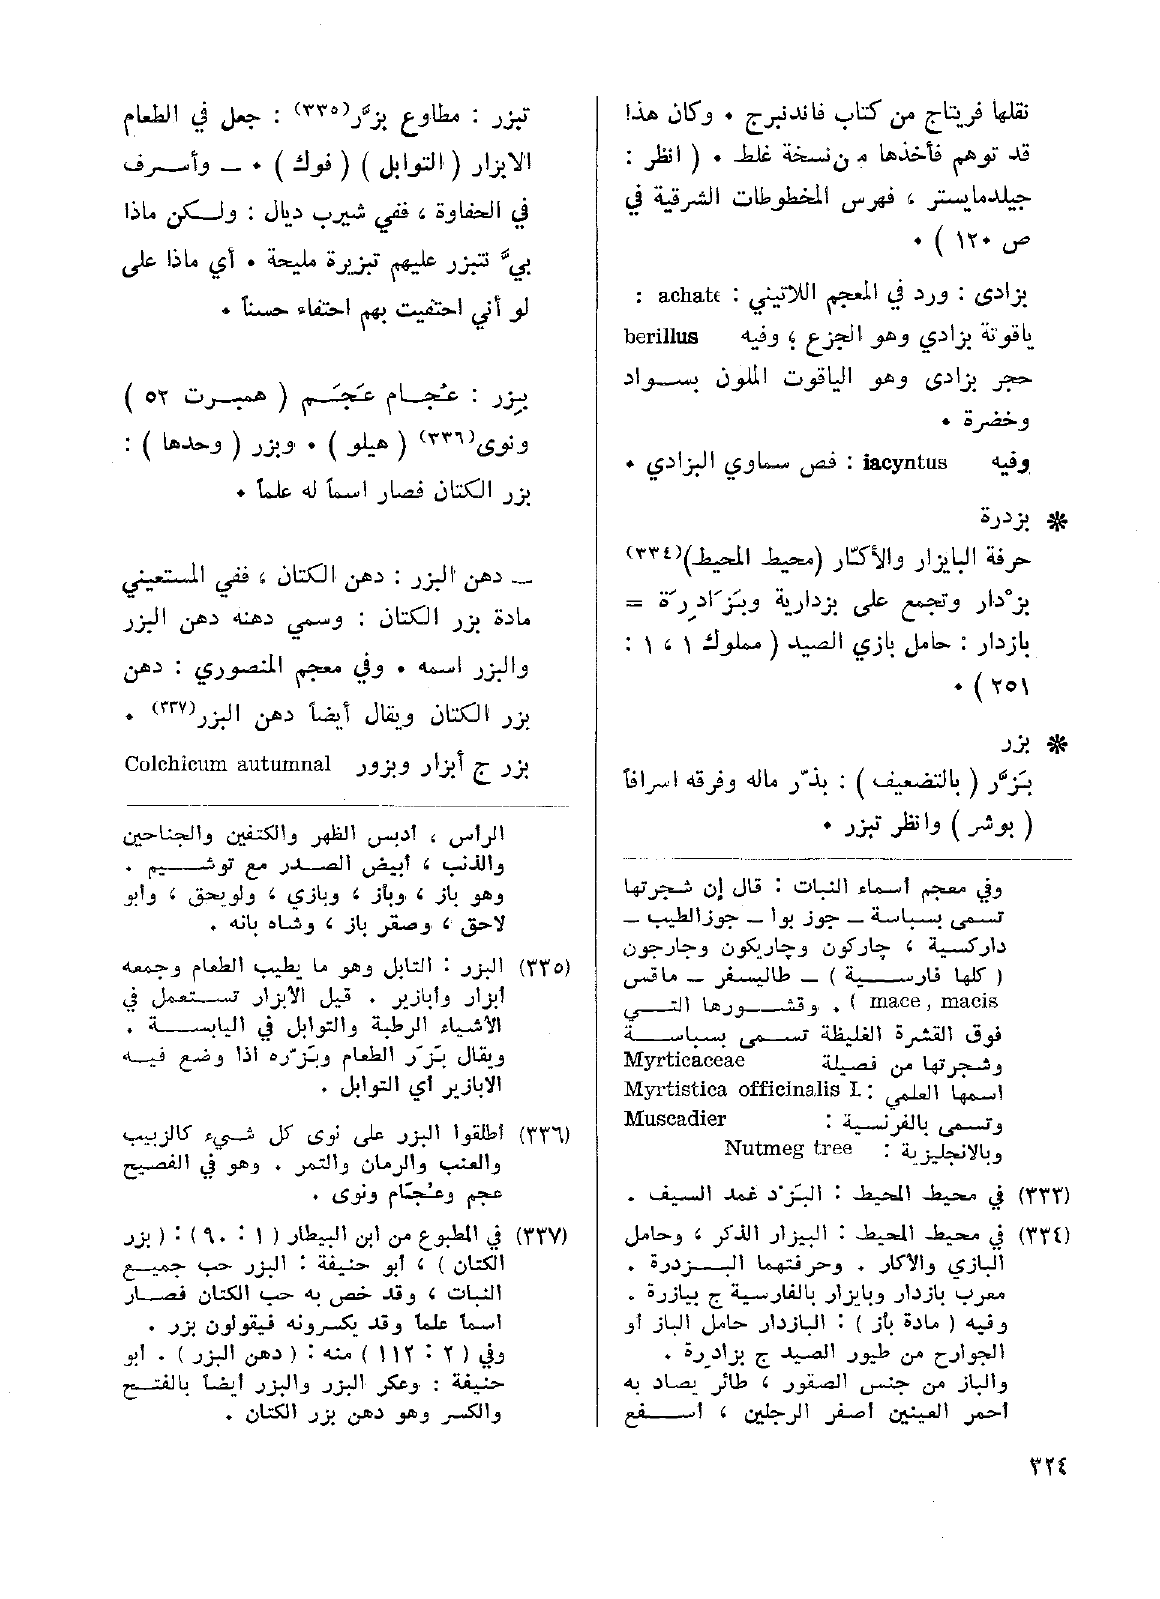 نقلها فريتاج من كتاب فاندنبرج ٠ وكان هذا
قد توهم فأخذها من نسخة غلط ٠ ( انظر :
جيلدمايستر ، فهرس المخطوطات الشرقية في
ص ١٢٠ ) ٠
بزادى : ورد في المعجم اللاتيني : achate :
ياقوتة بزادي وهو الجزع ؛ وفيه berillus
حجر بزادى وهو الياقوت الملون بسواد
وخضرة ٠
وفيه iacyntus : فص سماوي البزادي ٠
* بزدرة
حرفة البايزار والأكّار (محيط المحيط)(٣٣٤)
بزْدار وتجمع على بزدارية وبَزَادِرَة =
بازدار : حامل بازي الصيد ( مملوك ١ ، ١ :
٢٥١ ) ٠
* بزر
بَزَّر ( بالتضعيف ) : بذّر ماله وفرقه اسرافاً
( بوشر ) وانظر تبزر ٠
وفي معجم أسماء النبات : قال إن شجرتها
تسمى بسباسة ــ جوز بوا ــ جوزالطيب ــ
داركسية ، چاركون وچاريكون وجارجون
( كلها فارسية ) ــ طاليسفر ــ ماقس
mace , macis ) . وقشورها التي
فوق القشرة الغليظة تسمى بسباسة
وشجرتها من فصيلة Myrticaceae
اسمها العلمي : Myrtistica officinalis L
وتسمى بالفرنسية : Muscadier
وبالانجليزية : Nutmeg tree
(٣٣٣) في محيط المحيط : البَزْد غمد السيف .
(٣٣٤) في محيط المحيط : البيزار الذكر ، وحامل
البازي والأكار . وحرفتهما البزدرة .
معرب بازدار وبايزار بالفارسية ج بيازرة .
وفيه ( مادة بأز ) : البازدار حامل الباز أو
الجوارح من طيور الصيد ج بزادرة .
والباز من جنس الصقور ، طائر يصاد به
أحمر العينين أصفر الرجلين ، أسفع
تبزر : مطاوع بزَّر(٣٣٥) : جعل في الطعام
الابزار ( التوابل ) ( فوك ) ٠ ــ وأسرف
في الحفاوة ، ففي شيرب ديال : ولكن ماذا
بيَّ نتبزر عليهم تبزيرة مليحة ٠ أي ماذا على
لو أني احتفيت بهم احتفاء حسناً ٠
بِزر : عُجام عَجَم ( همبرت ٥٢ )
ونوى(٣٣٦) ( هيلو ) ٠ وبزر ( وحدها ) :
بزر الكتان فصار اسماً له علماً ٠
ــ دهن البزر : دهن الكتان ، ففي المستعيني
مادة بزر الكتان : وسمي دهنه دهن البزر
والبزر اسمه ٠ وفي معجم المنصوري : دهن
بزر الكتان ويقال أيضاً دهن البزر(٣٣٧) ٠
بزر ج أبزار وبزور Colchicum autumnal
الرأس ، أدبس الظهر والكتفين والجناحين
والذنب ، أبيض الصدر مع توشيم .
وهو باز ، وبأز ، وبازي ، ولويحق ، وأبو
لاحق ، وصقر باز ، وشاه بانه .
(٣٣٥) البزر : التابل وهو ما يطيب الطعام وجمعه
أبزار وأبازير . قيل الأبزار تستعمل في
الأشياء الرطبة والتوابل في اليابسة .
ويقال بَزَر الطعام وبَزَّره اذا وضع فيه
الابازير أي التوابل .
(٣٣٦) أطلقوا البزر على نوى كل شيء كالزبيب
والعنب والرمان والتمر . وهو في الفصيح
عجم وعُجّام ونوى .
(٣٣٧) في المطبوع من ابن البيطار ( ١ : ٩٠ ) : ( بزر
الكتان ) ، أبو حنيفة : البزر حب جميع
النبات ، وقد خص به حب الكتان فصار
اسما علما وقد يكسرونه فيقولون بزر .
وفي ( ٢ : ١١٢ ) منه : ( دهن البزر ) . أبو
حنيفة : وعكر البزر والبزر أيضاً بالفتح
والكسر وهو دهن بزر الكتان .
٣٢٤